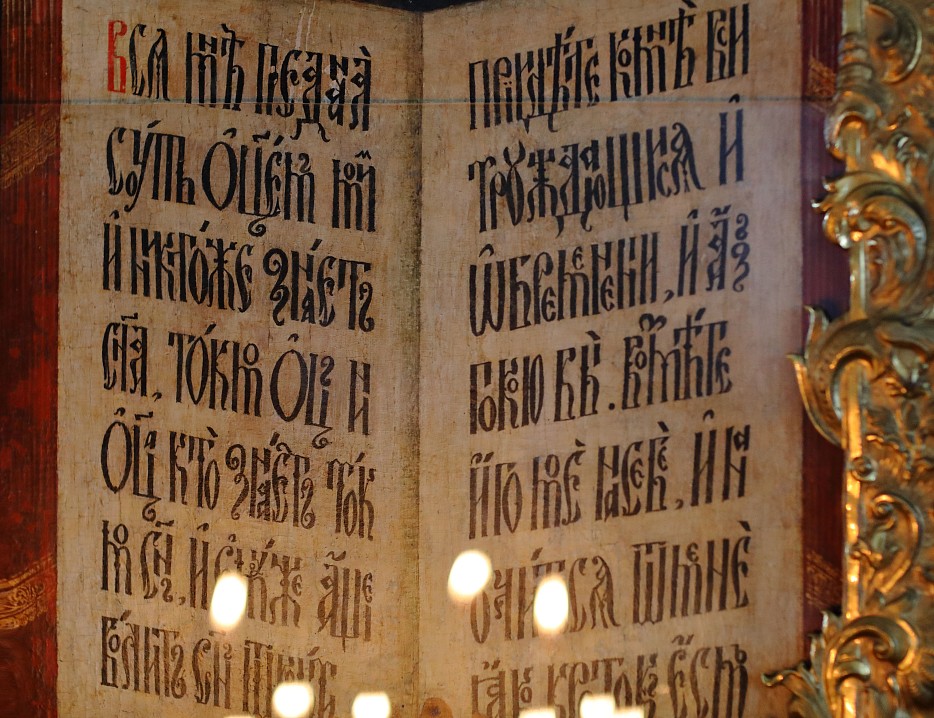 Всѧ мнѣ преданà
сꙋ́ть Ѻ҆ц҃е́мъ мои́
и҆ никто́же зна́етъ
сн҃а, то́кмѡ Ѻ҆ц҃ъ ни
Ѻ҆ц҃а ктò зна́етъ то́к
мѡ сн҃ъ, и҆ є҆мꙋ́же а҆́ще
во́литъ сн҃ъ
прїидѣ́те ко мнѣ̀ вси
трꙋждающїисѧ и҆
ѡ҆бременени, и҆ а҆́зъ
покою вы̀. возмѣ́те
и҆́го моѐ на себѐ, и҆ на
ꙋчи́тесѧ ѿ менѐ
ꙗко кротокъ є҆смь